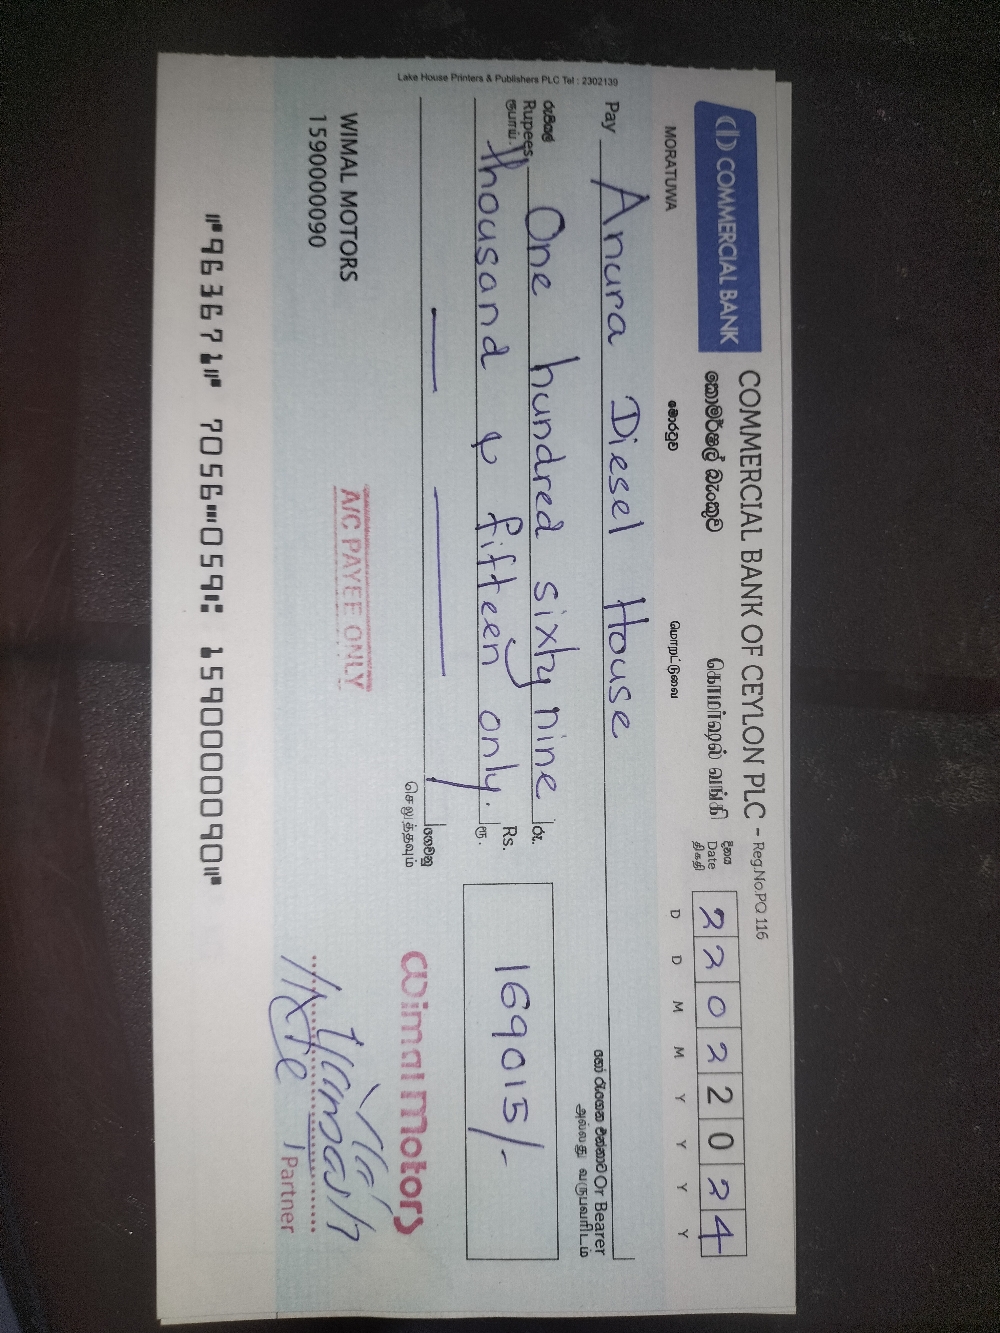 COMMERCIAL BANK
COMMERCIAL BANK OF CEYLON PLC - Reg.No.PQ 116
කොමර්ෂල් බැංකුව
கொமர்ஷல் வங்கி
දිනය
Date
திகதி
2 2 0 2 2 0 2 4
D D M M Y Y Y Y
MORATUWA
මොරටුව
மொறட்டுவை
Pay Anura Diesel House
හෝ රැගෙන එන්නාට Or Bearer
அல்லது வருபவரிடம்
රුපියල්
Rupees
ரூபாய்
One hundred sixty nine
thousand & fifteen only.
රු.
Rs.
ரூ.
169015/-
ගෙවනු
செலுத்தவும்
Wimal Motors
WIMAL MOTORS
1590000090
A/C PAYEE ONLY
Partner
Lake House Printers & Publishers PLC Tel : 2302139
⑈963671⑈ 7056⑉059⑆ 1590000090⑈